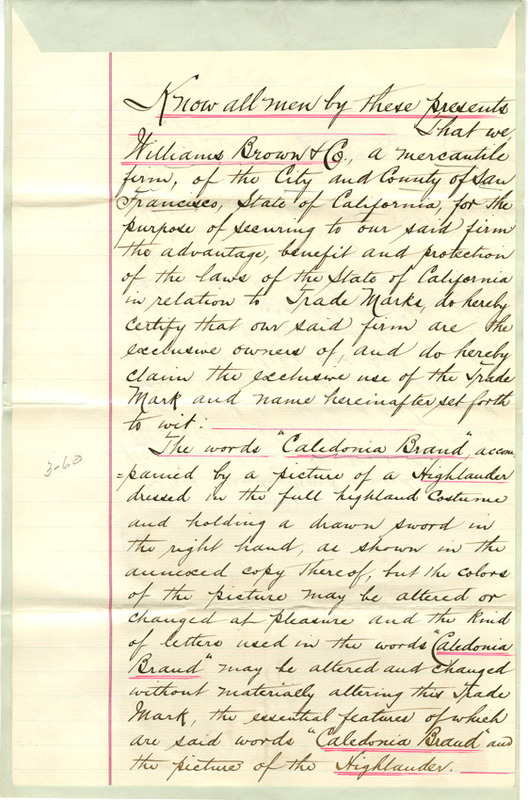 Know all men by these presents
That we,
Williams Brown & Co., a mercantile
firm, of the City and County of San
Francisco, State of California, for the
purpose of securing to our said firm
the advantage, benefit and protection
of the laws of the State of California
in relation to Trade Marks, do hereby
certify that our said firm are the
exclusive owners of, and do hereby
claim the exclusive use of the Trade
Mark and name hereinafter set forth
to wit:
The words "Caledonia Brand", accom
=panied by a picture of a Highlander
dressed in the full highland costume
and holding a drawn sword in
the right hand, as shown in the
annexed copy thereof, but the colors
of the picture may be altered or
changed at pleasure and the kind
of letters used in the words "Caledonia
Brand" may be altered and changed
without materially altering this Trade
Mark, the essential features of which
are said words "Caledonia Brand" and
the picture of the Highlander.
3-60